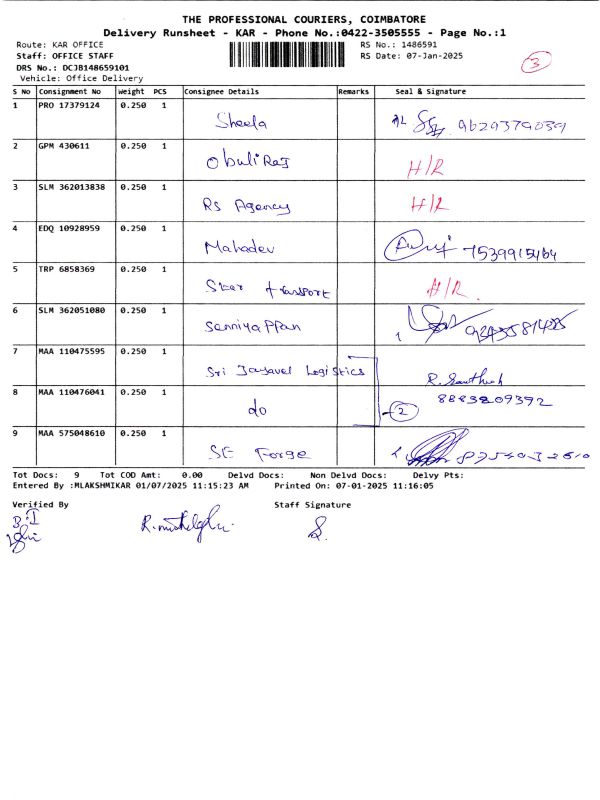 THE PROFESSIONAL COURIERS, COIMBATORE
Delivery Runsheet - KAR - Phone No.:0422-3505555 - Page No.:1
Route: KAR OFFICE RS No.: 1486591
Staff: OFFICE STAFF RS Date: 07-Jan-2025
3
DRS No.: DCJB148659101
Vehicle: Office Delivery
S No Consignment No Weight PCS Consignee Details Remarks Seal & Signature
1 PRO 17379124 0.250 1 Sheela 9629379039
2 GPM 430611 0.250 1 Obuli Raj H/R
3 SLM 362013838 0.250 1 RS Agency H/R
4 EDQ 10928959 0.250 1 Mahadev 7539915464
5 TRP 6858369 0.250 1 Star transport H/R
6 SLM 362051080 0.250 1 Senniyappan
7 MAA 110475595 0.250 1 Sri Jayavel Logistics R. Santhosh
8 MAA 110476041 0.250 1 do 2 8883209392
9 MAA 575048610 0.250 1 SE Forge
Tot Docs: 9 Tot COD Amt: 0.00 Delvd Docs: Non Delvd Docs: Delvy Pts:
Entered By :MLAKSHMIKAR 01/07/2025 11:15:23 AM Printed On: 07-01-2025 11:16:05
Verified By Staff Signature